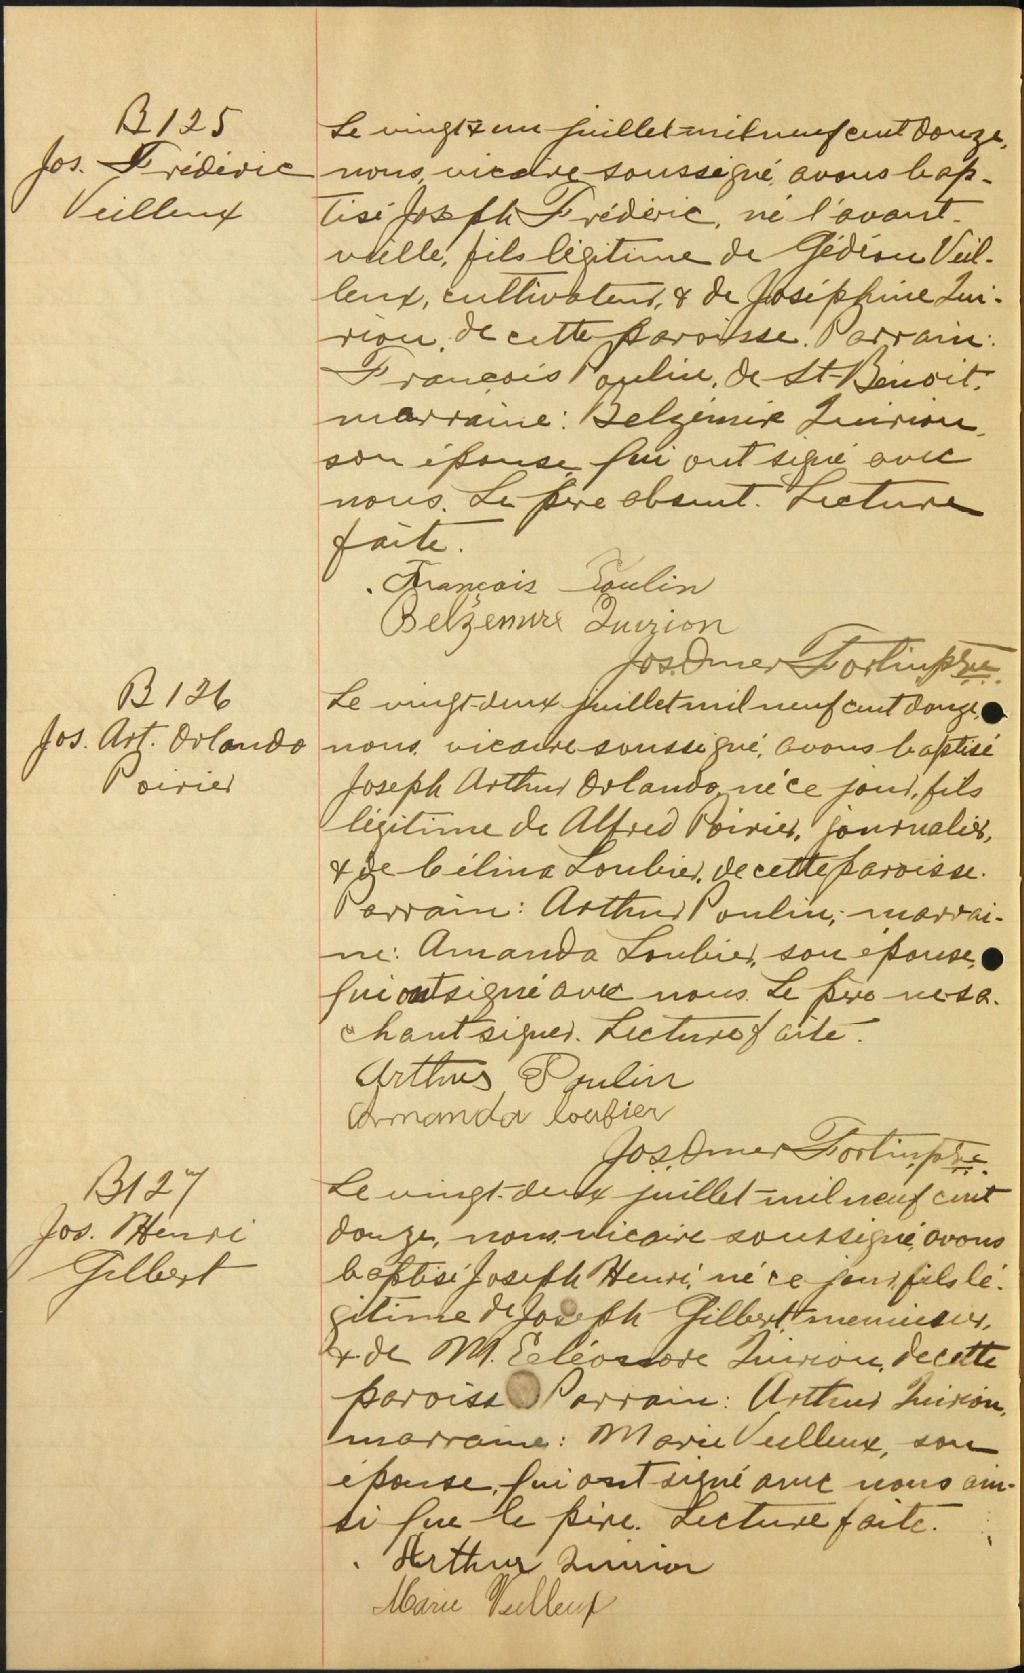 B125
Jos. Frédéric
Veilleux
Le vingt & un juillet mil neuf cent douze,
nous, vicaire soussigné, avons bap-
tisé Joseph Frédéric, né l'avant-
veille, fils légitime de Gédéon Veil-
leux, cultivateur, & de Joséphine Qui-
rion, de cette paroisse. Parrain:
François Poulin, de St-Benoit,
marraine: Belzémire Quirion,
son épouse, qui ont signé avec
nous. Le père absent. Lecture
faite.
François Poulin
Belzemire Quirion
Jos. Omer Fortin, ptre
B126
Jos. Art. Orlando
Poirier
Le vingt-deux juillet mil neuf cent douze,
nous, vicaire soussigné, avons baptisé
Joseph Arthur Orlando, né ce jour, fils
légitime de Alfred Poirier, journalier,
& de Célina Loubier, de cette paroisse.
Parrain: Arthur Poulin; marrai-
ne: Amanda Loubier, son épouse,
qui ont signé avec nous. Le père ne sa-
chant signer. Lecture faite.
Arthur Poulin
Armanda Loubier
Jos. Omer Fortin, ptre
B127
Jos. Henri
Gilbert
Le vingt-deux juillet mil neuf cent
douze, nous, vicaire soussigné, avons
baptisé Joseph Henri, né ce jour, fils lé-
gitime de Joseph Gilbert, menuisier,
& de M. Eléonore Quirion, de cette
paroisse. Parrain: Arthur Quirion,
marraine: Marie Veilleux, son
épouse, qui ont signé avec nous ain-
si que le père. Lecture faite.
Arthur Quirion
Marie Veilleux